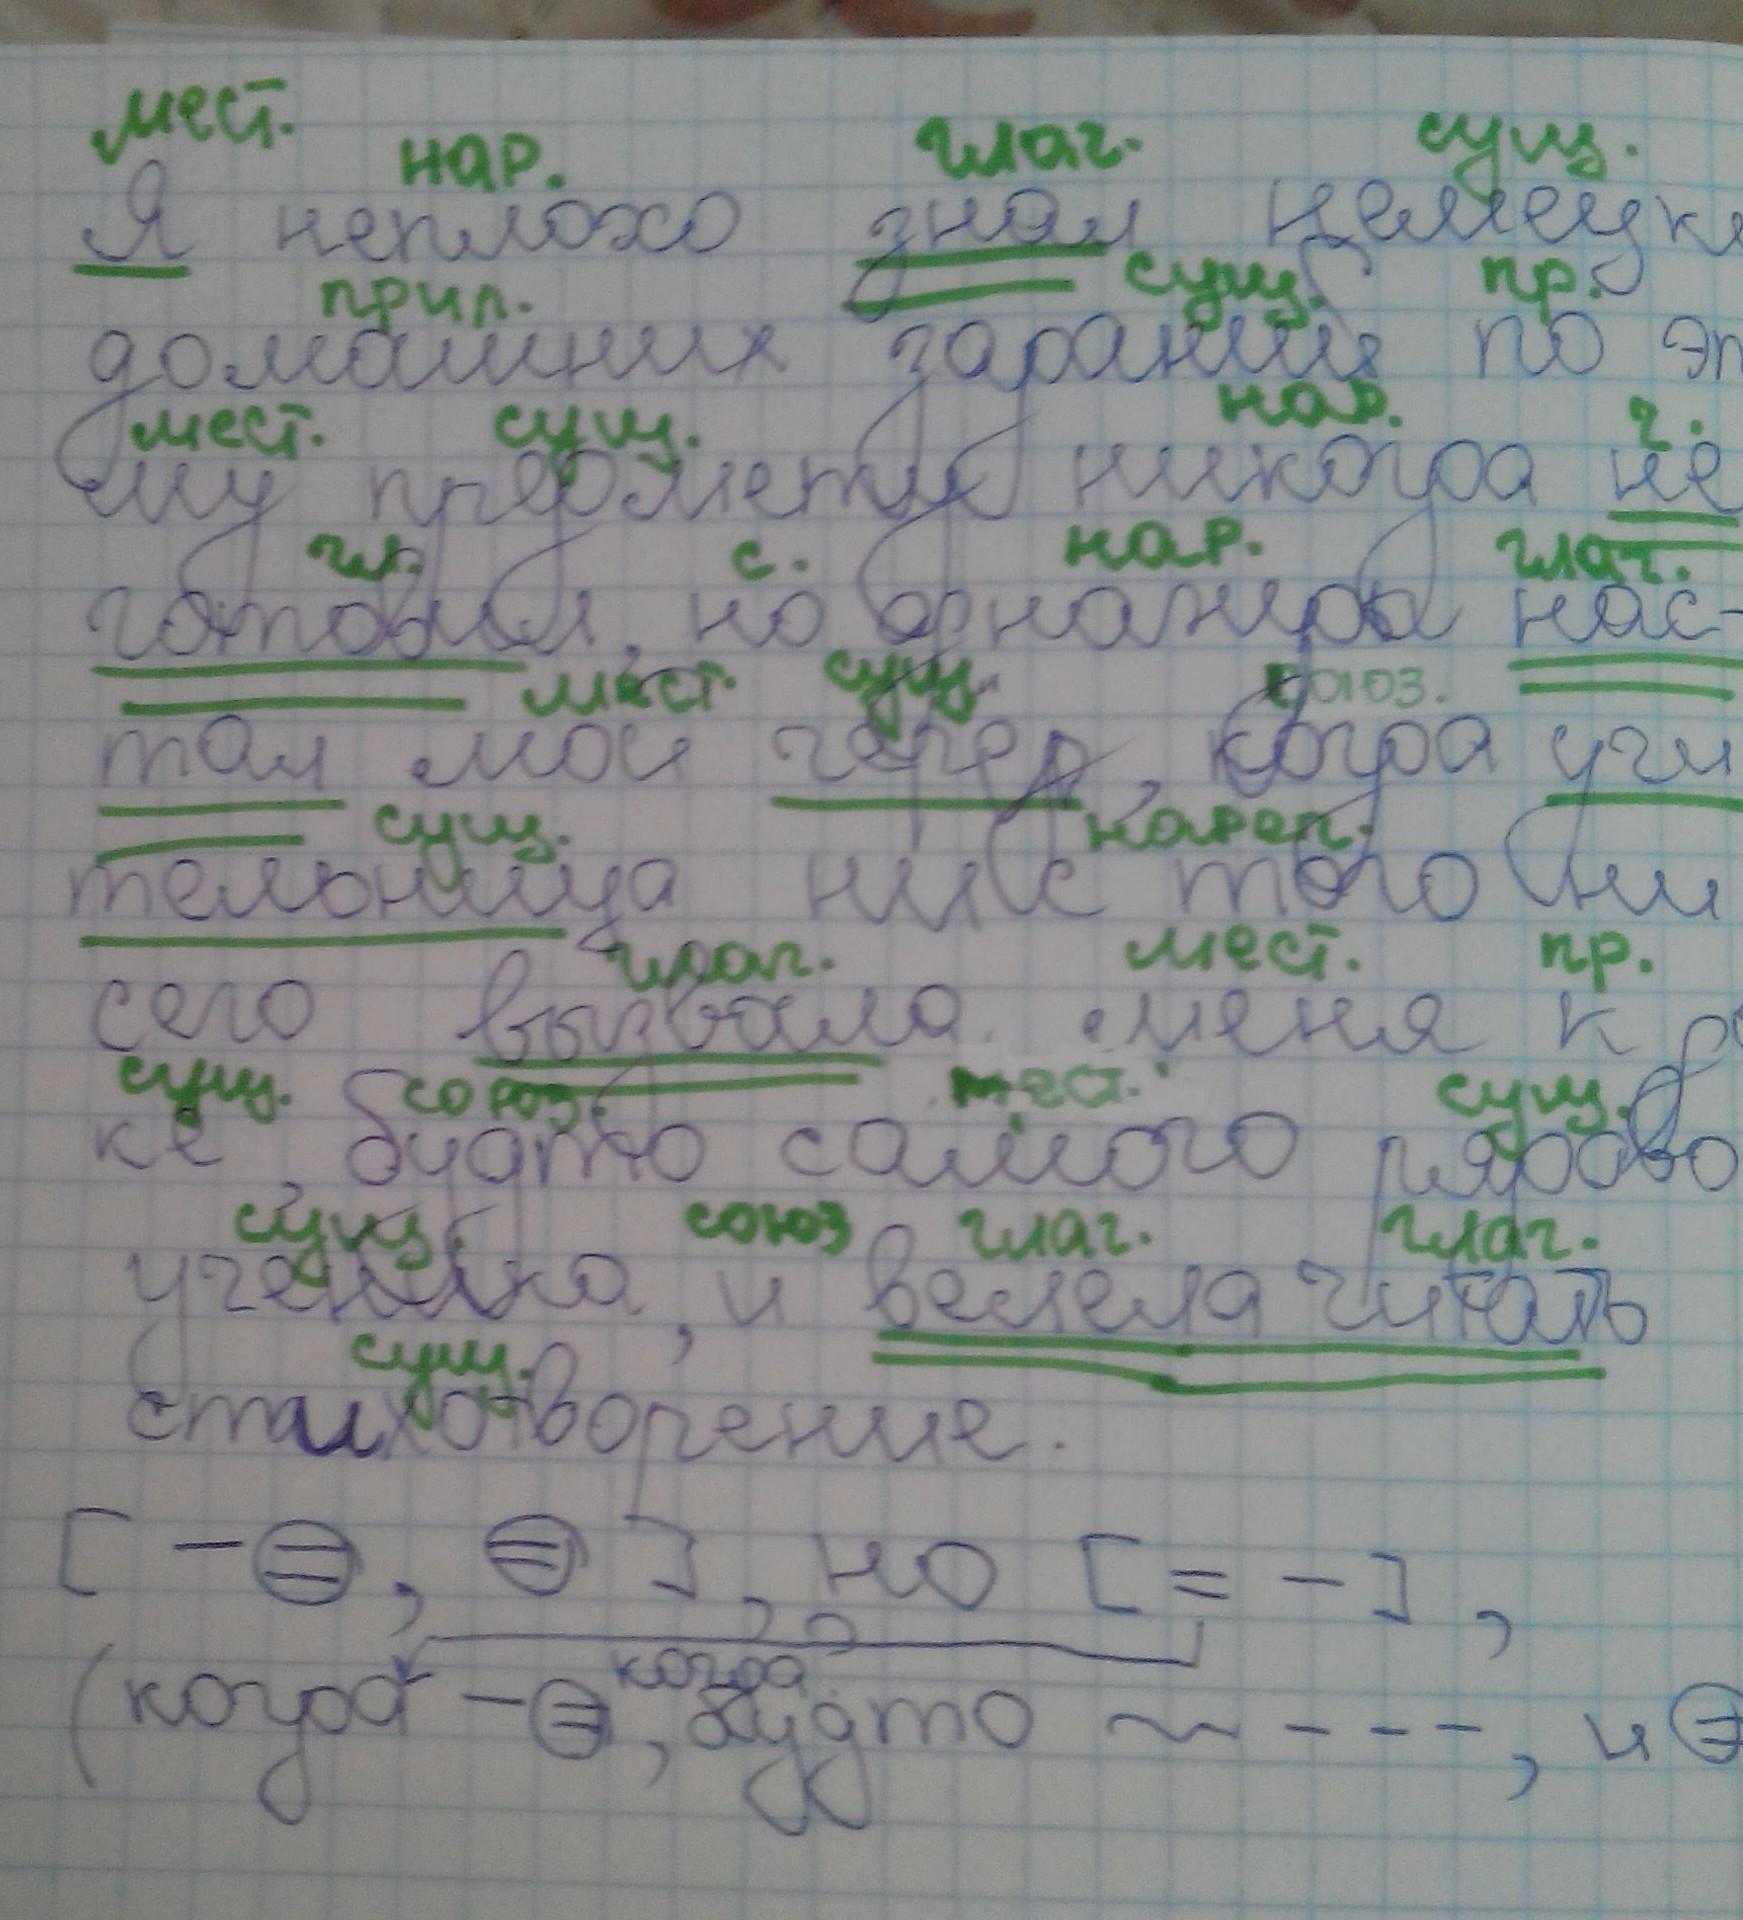 мест. нар. глаг. сущ.
Я неплохо знал немецк
прил. сущ. пр.
домашних задания по эт
мест. сущ. нар. ч.
му предмету никогда не
гл. с. нар. глаг.
готовил, но однажды нас-
мест. сущ. союз.
тал мой черёд, когда учи
сущ. нареч.
тельница ни с того ни
глаг. мест. пр.
сего вызвала меня к до
сущ. союз. мест. сущ.
ке, будто самого рядово
сущ. союз глаг. глаг.
ученика, и велела читать
сущ.
стихотворение.
[ - = , = ], но [ = - ],
когда
(когда - = , будто ~ - - - , и =